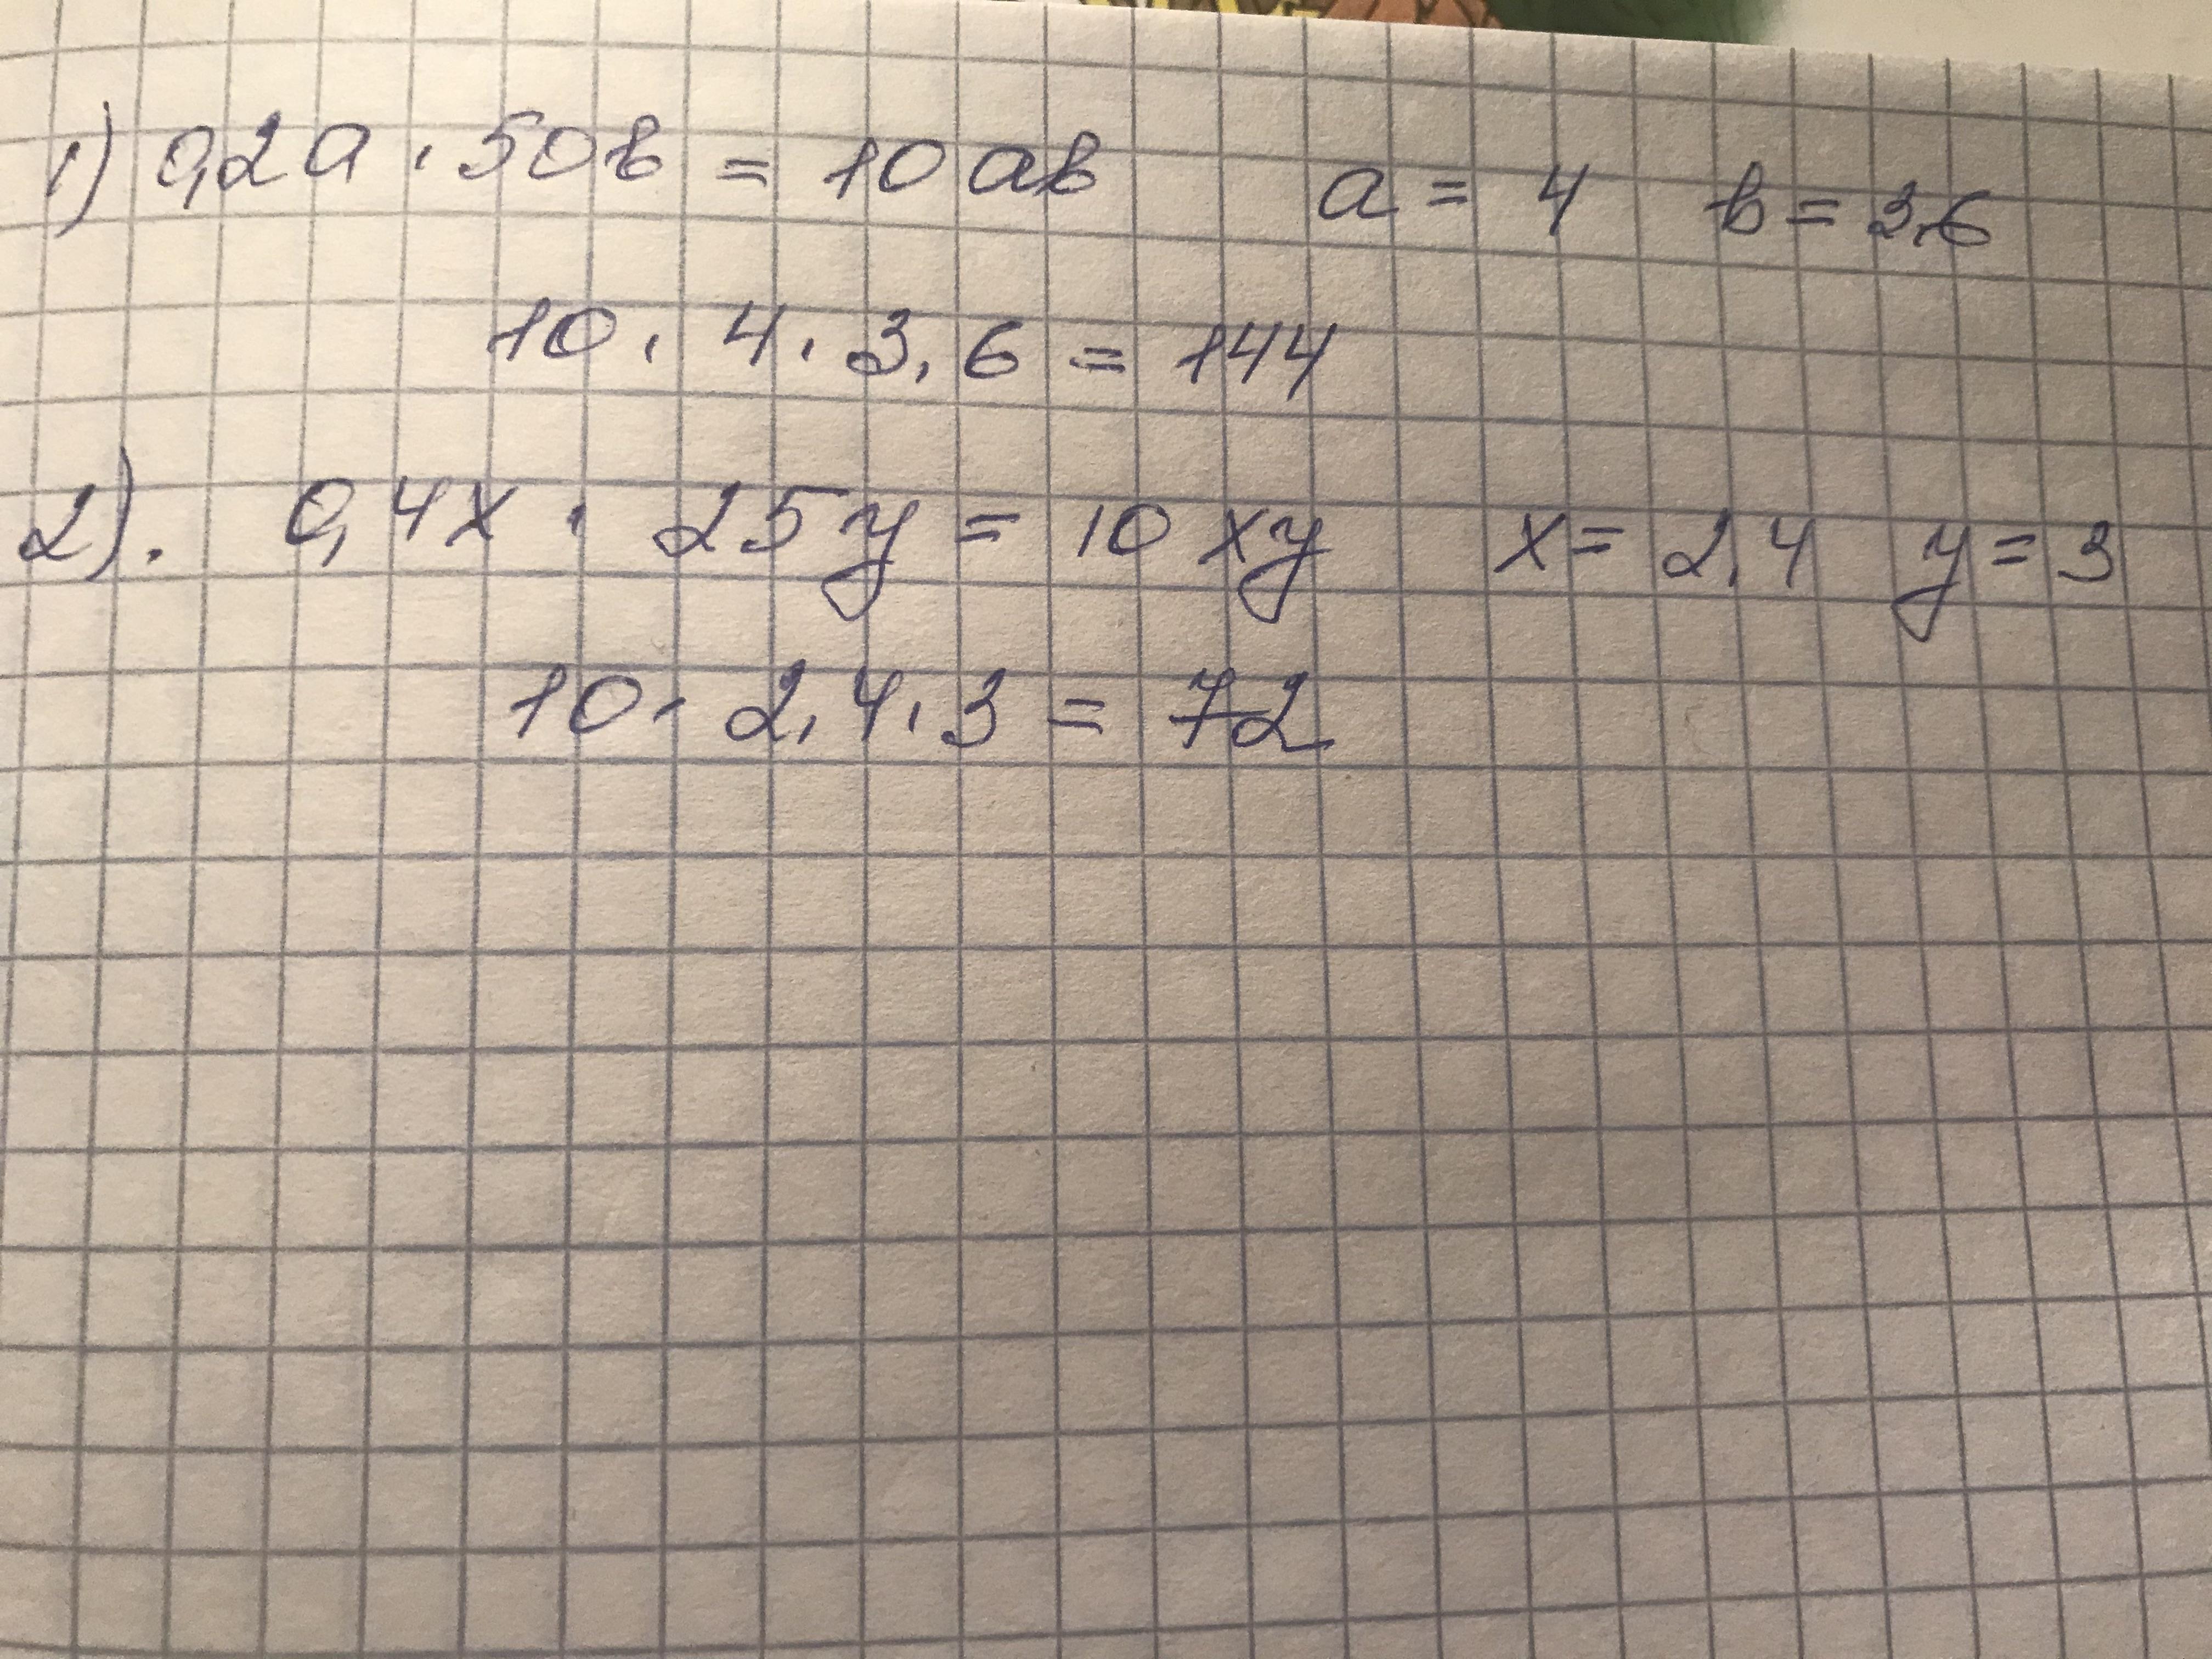 1) 0,2a · 50в = 10 ав a = 4 в = 3,6
10 · 4 · 3,6 = 144
2). 0,4x · 25y = 10 xy x = 2,4 y = 3
10 · 2,4 · 3 = 72